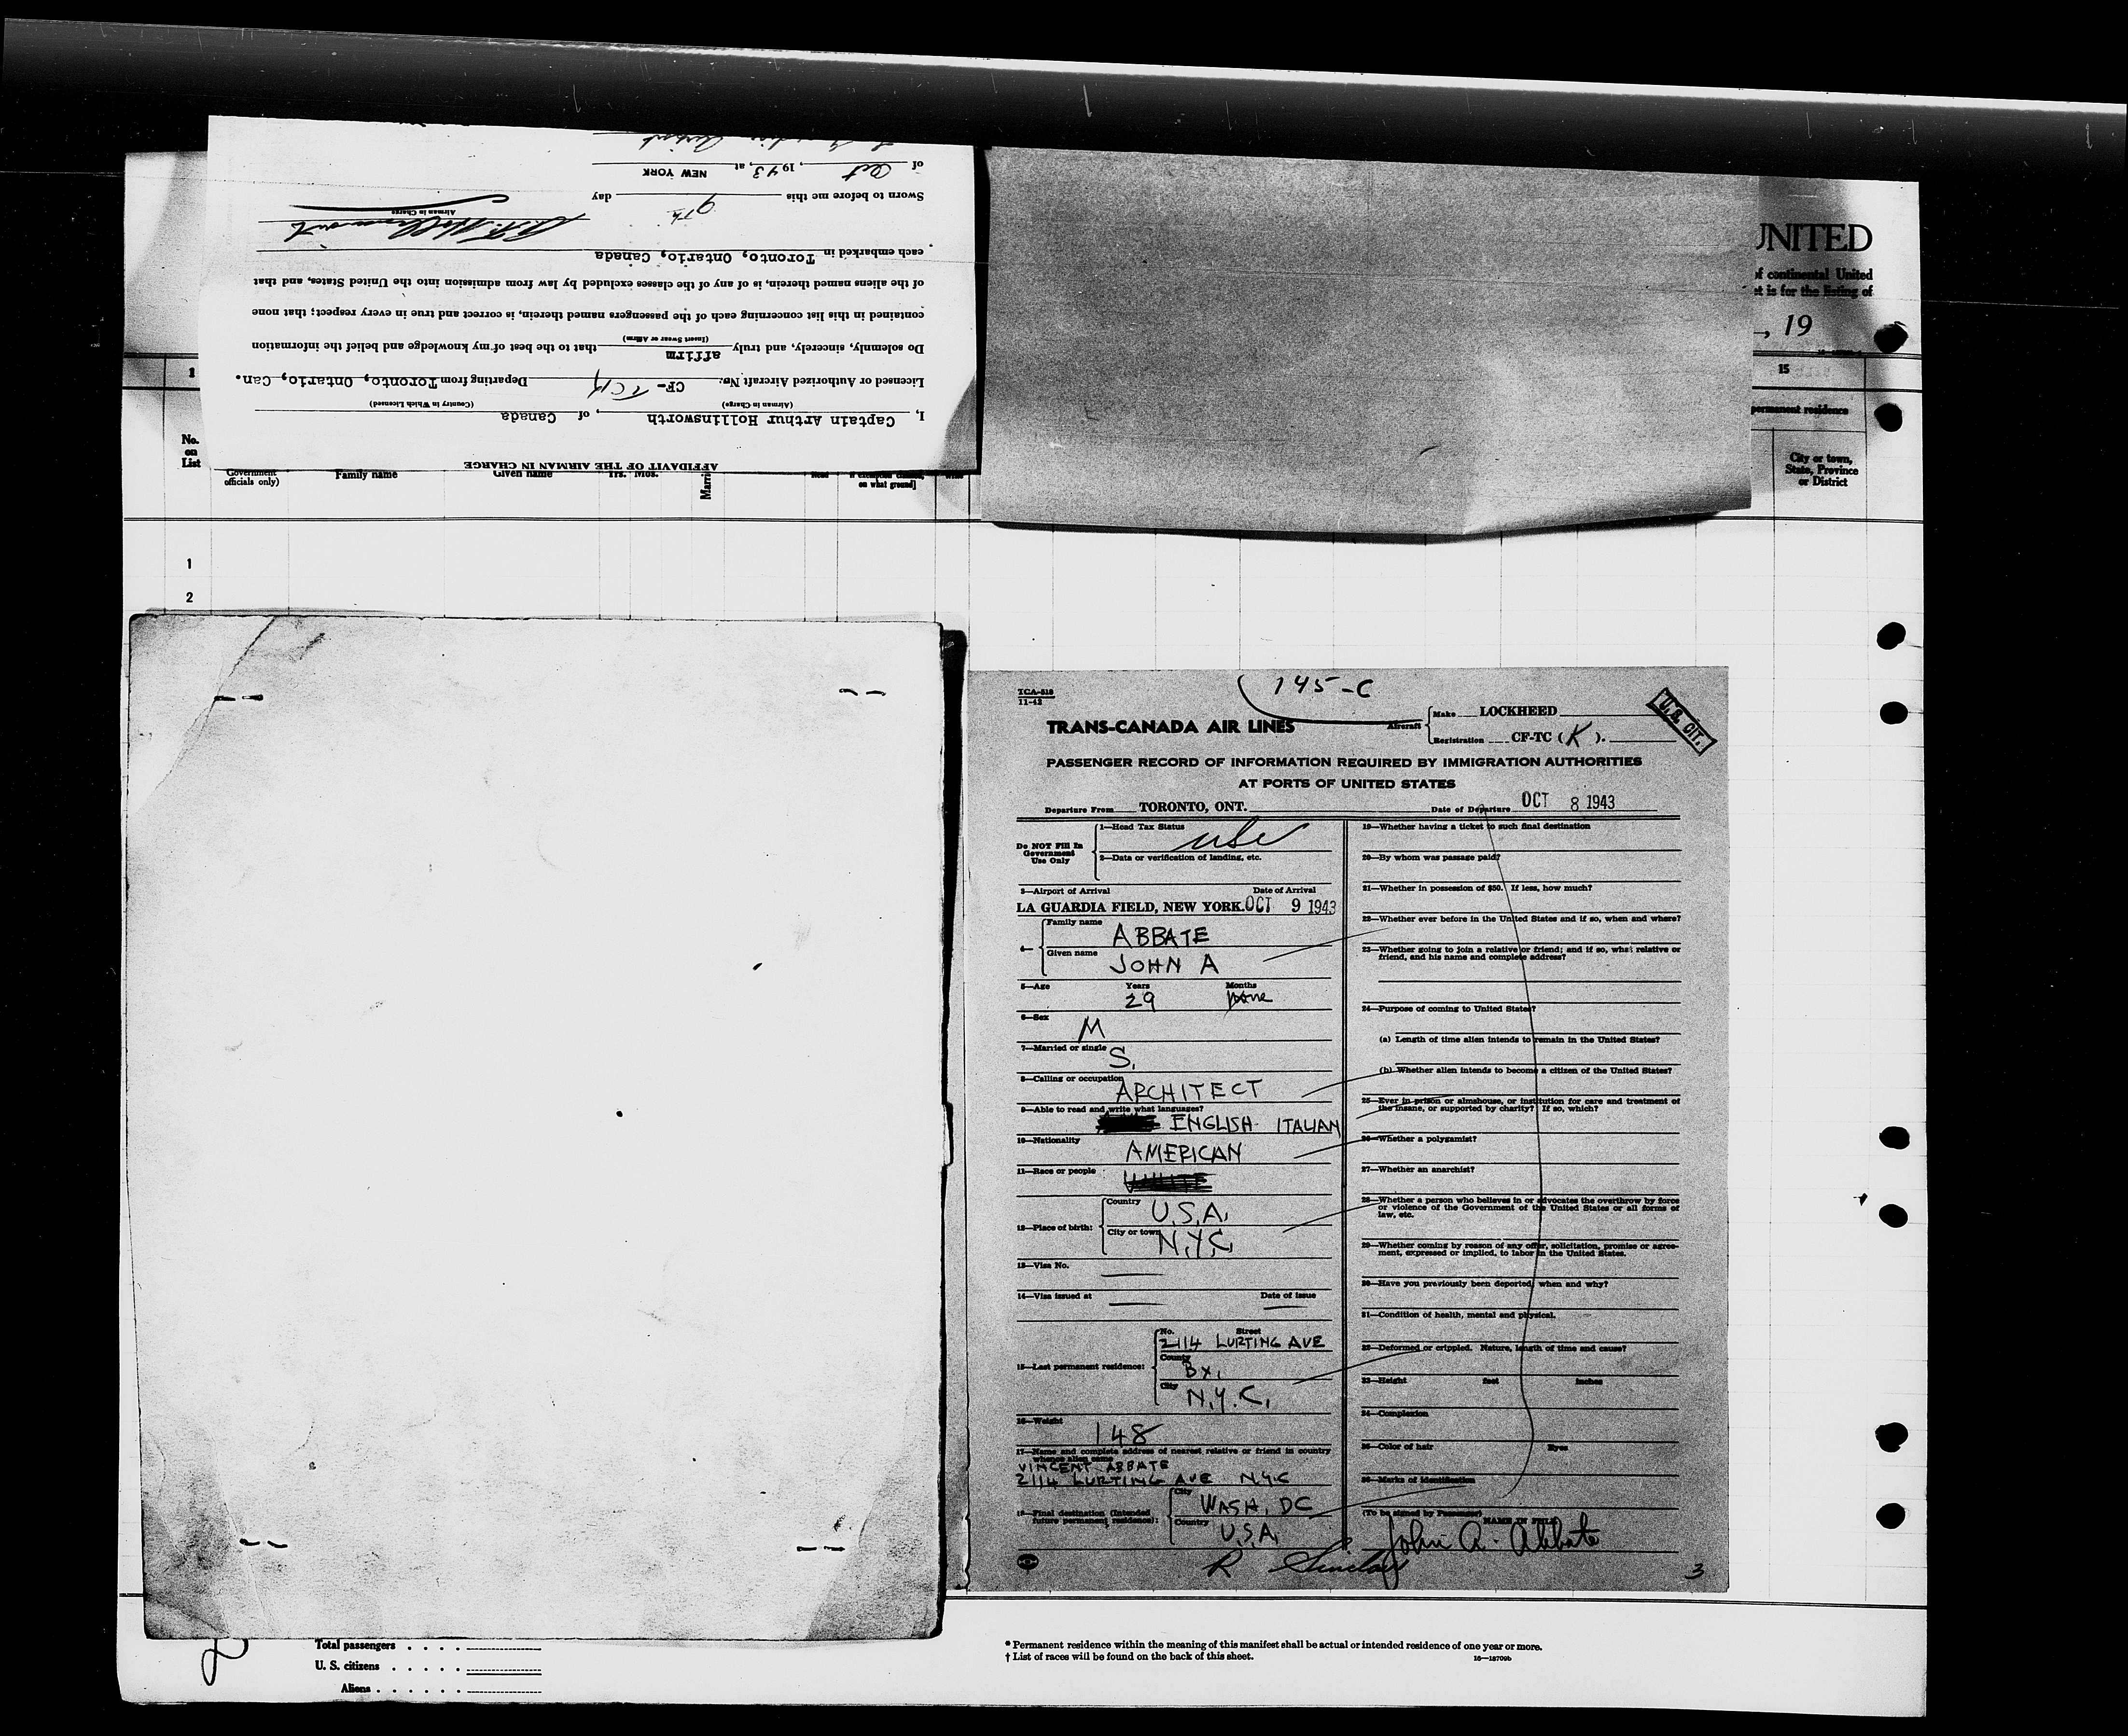 AFFIDAVIT OF THE AIRMAN IN CHARGE
I, Captain Arthur Hollinsworth, of Canada
(Airman in Charge) (Country in Which Licensed)
Licensed or Authorized Aircraft No. CF-TCK Departing from Toronto, Ontario, Can.
Do solemnly, sincerely, and truly affirm that to the best of my knowledge and belief the information
(Insert Swear or Affirm)
contained in this list concerning each of the passengers named therein, is correct and true in every respect; that none
of the aliens named therein, is of any of the classes excluded by law from admission into the United States, and that
each embarked in Toronto, Ontario, Canada
Airman in Charge
Sworn to before me this 9th day
of Oct, 1943, at NEW YORK
UNITED
of continental United
et is for the listing of
, 19
1
15
permanent residence
No.
on
List
Government
officials only)
Family name
Given name
Yrs. Mos.
Read
on what ground]
City or town,
State, Province
or District
1
2
TCA-518
11-42
145-C
TRANS-CANADA AIR LINES
Aircraft
Make LOCKHEED
Registration CF-TC (K).
U.S. CIT.
PASSENGER RECORD OF INFORMATION REQUIRED BY IMMIGRATION AUTHORITIES
AT PORTS OF UNITED STATES
Departure From TORONTO, ONT. Date of Departure OCT 8 1943
Do NOT Fill In
Government
Use Only
1—Head Tax Status
2—Data or verification of landing, etc.
3—Airport of Arrival Date of Arrival
LA GUARDIA FIELD, NEW YORK. OCT 9 1943
4—
Family name
ABBATE
Given name
JOHN A
5—Age Years Months
29 none
6—Sex
M
7—Married or single
S.
8—Calling or occupation
ARCHITECT
9—Able to read and write what languages?
ENGLISH- ITALIAN
10—Nationality
AMERICAN
11—Race or people
WHITE
12—Place of birth:
Country
U.S.A.
City or town
N.Y.C.
13—Visa No.
14—Visa issued at Date of issue
15—Last permanent residence:
No. Street
2114 LURTING AVE
County
Bx.
City
N.Y.C.
16—Weight
148
17—Name and complete address of nearest relative or friend in country
whence alien came
VINCENT ABBATE
2114 LURTING AVE N.Y.C
18—Final destination (Intended
future permanent residence):
City
WASH, DC
Country
U.S.A.
19—Whether having a ticket to such final destination
20—By whom was passage paid?
21—Whether in possession of $50. If less, how much?
22—Whether ever before in the United States and if so, when and where?
23—Whether going to join a relative or friend; and if so, what relative or
friend, and his name and complete address?
24—Purpose of coming to United States?
(a) Length of time alien intends to remain in the United States?
(b) Whether alien intends to become a citizen of the United States?
25—Ever in prison or almshouse, or institution for care and treatment of
the insane, or supported by charity? If so, which?
26—Whether a polygamist?
27—Whether an anarchist?
28—Whether a person who believes in or advocates the overthrow by force
or violence of the Government of the United States or all forms of
law, etc.
29—Whether coming by reason of any offer, solicitation, promise or agree-
ment, expressed or implied, to labor in the United States.
30—Have you previously been deported, when and why?
31—Condition of health, mental and physical.
32—Deformed or crippled. Nature, length of time and cause?
33—Height feet inches
34—Complexion
35—Color of hair Eyes
36—Marks of identification
(To be signed by Passenger) NAME IN FULL
John A. Abbate
R Sinclair
3
Total passengers
U. S. citizens
Aliens
* Permanent residence within the meaning of this manifest shall be actual or intended residence of one year or more.
† List of races will be found on the back of this sheet.
16—18709b